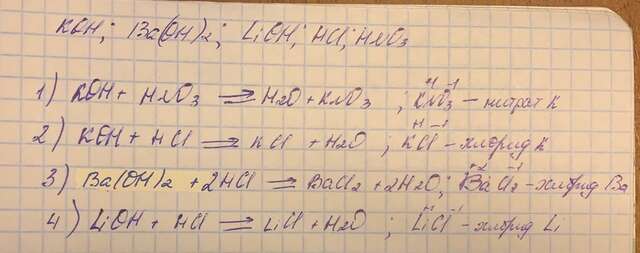 KOH; Ba(OH)2; LiOH; HCl; HNO3
1) KOH + HNO3 ⇒ H2O + KNO3 ; K⁺¹NO3⁻¹ – нитрат K
2) KOH + HCl ⇒ KCl + H2O ; K⁺¹Cl⁻¹ – хлорид K
3) Ba(OH)2 + 2HCl ⇒ BaCl2 + 2H2O; Ba⁺²Cl2⁻¹ – хлорид Ba
4) LiOH + HCl ⇒ LiCl + H2O ; Li⁺¹Cl⁻¹ – хлорид Li